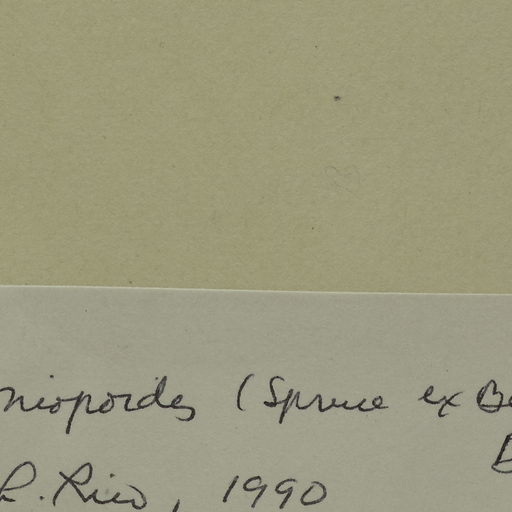 niopoides (Spruce ex Be
B
L. Rico, 1990